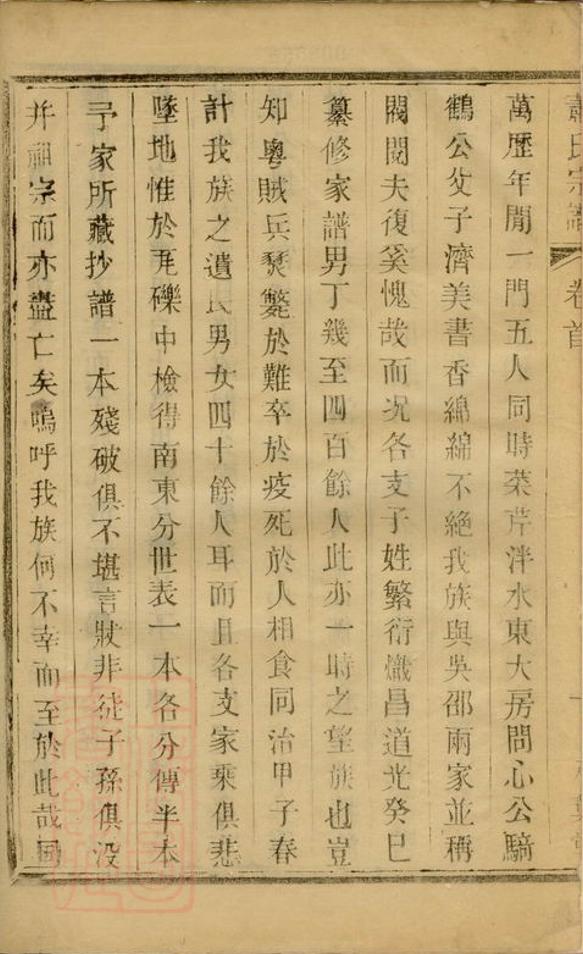 氏宗譜 卷首
萬歷年間一門五人同時菜芹泮水東大房問心公騎
鶴公父子濟美書香綿綿不絕我族與吳邵兩家並稱
閥閱夫復奚愧哉而况各支子姓繁衍熾昌道光癸巳
纂修家譜男丁幾至四百餘人此亦一時之望族也豈
知粵賊兵燹斃於難卒於疫死於人相食同治甲子春
計我族之遺民男女四十餘人耳而且各支家乘俱悲
墜地惟於瓦礫中檢得南東分世表一本各分傳半本
予家所藏抄譜一本殘破俱不堪言狀非徒子孫俱沒
并祖宗而亦盡亡矣嗚呼我族何不幸而至於此哉同